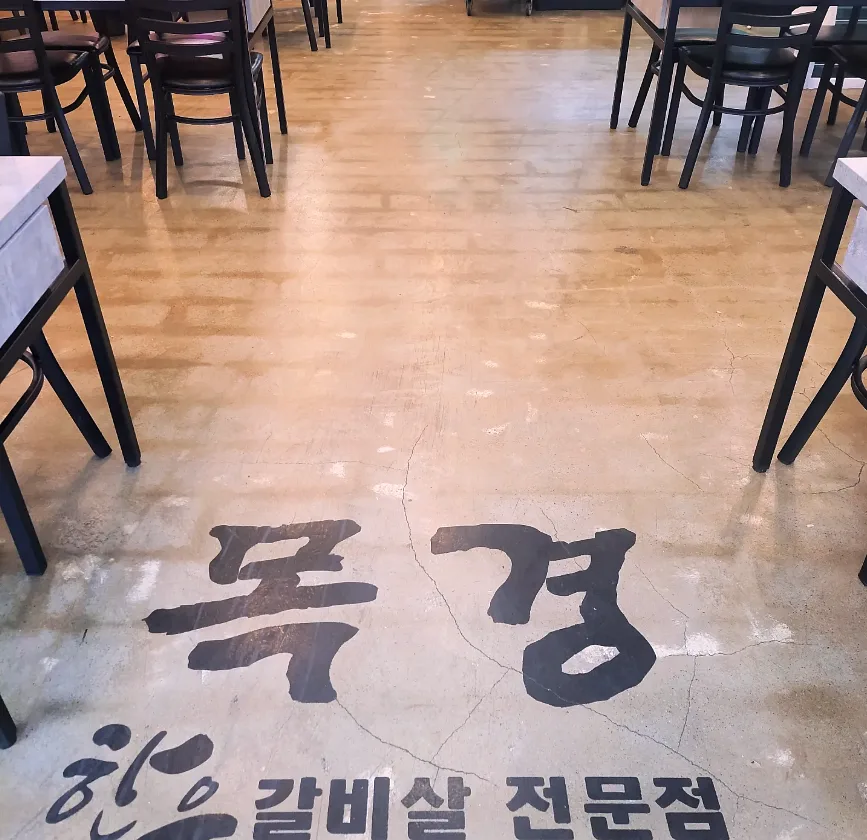 목경
한우 갈비살 전문점